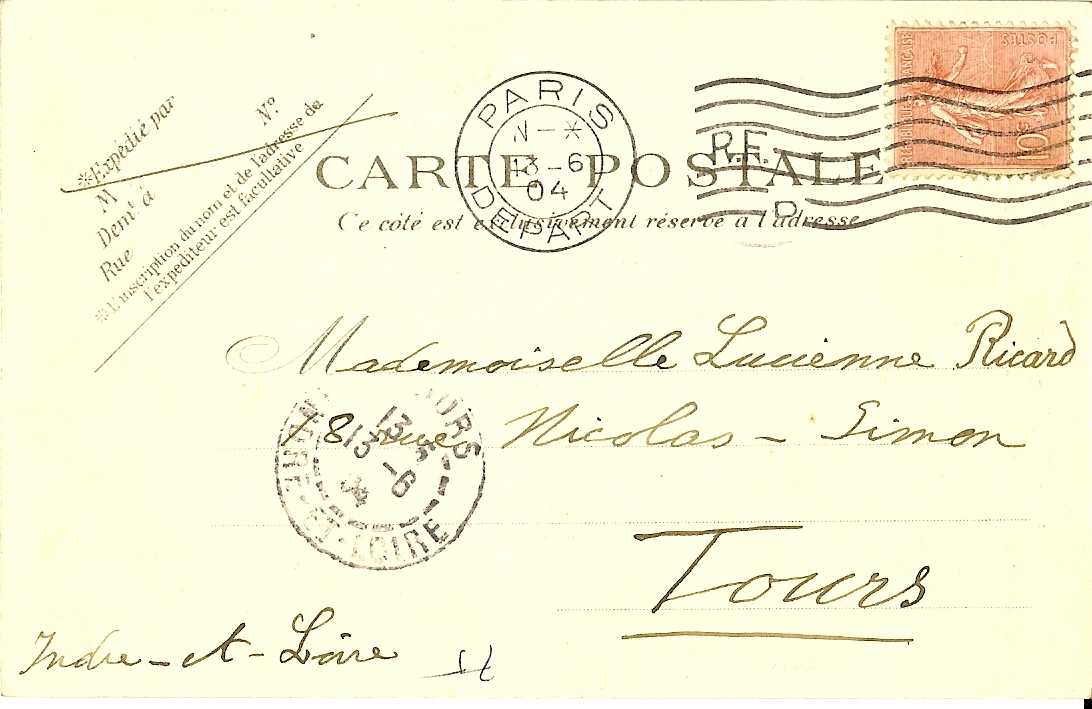 ✳Expédié par
M
Demt à
Rue
No
✳L'inscription du nom et de l'adresse de
l'expéditeur est facultative
PARIS
13-6
04
DEPART
R.F.
D
POSTES
10
CARTE POSTALE
Ce côté est exclusivement réservé à l'adresse
Mademoiselle Lucienne Ricard
18 rue Nicolas-Simon
TOURS
13
13-6
INDRE-ET-LOIRE
Tours
Indre-et-Loire